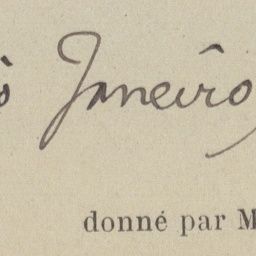 Janeíro,
donné par M